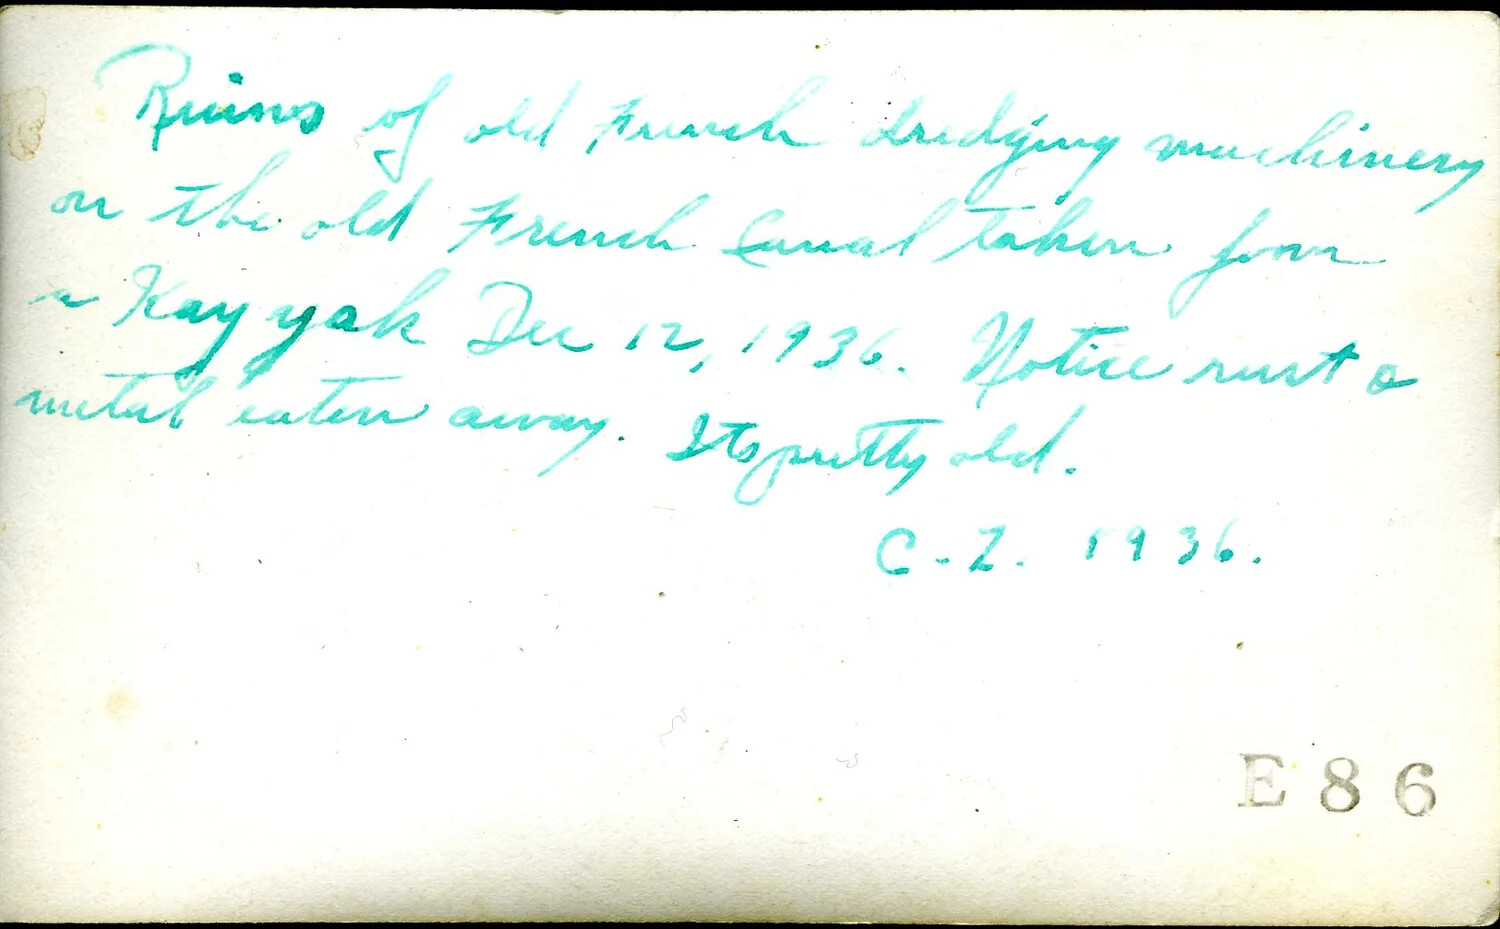 Ruins of old French dredging machinery
on the old French Canal taken from
a Kayyak Dec 12, 1936. Notice rust &
metal eaten away. Its pretty old.
C.Z. 1936.
E86